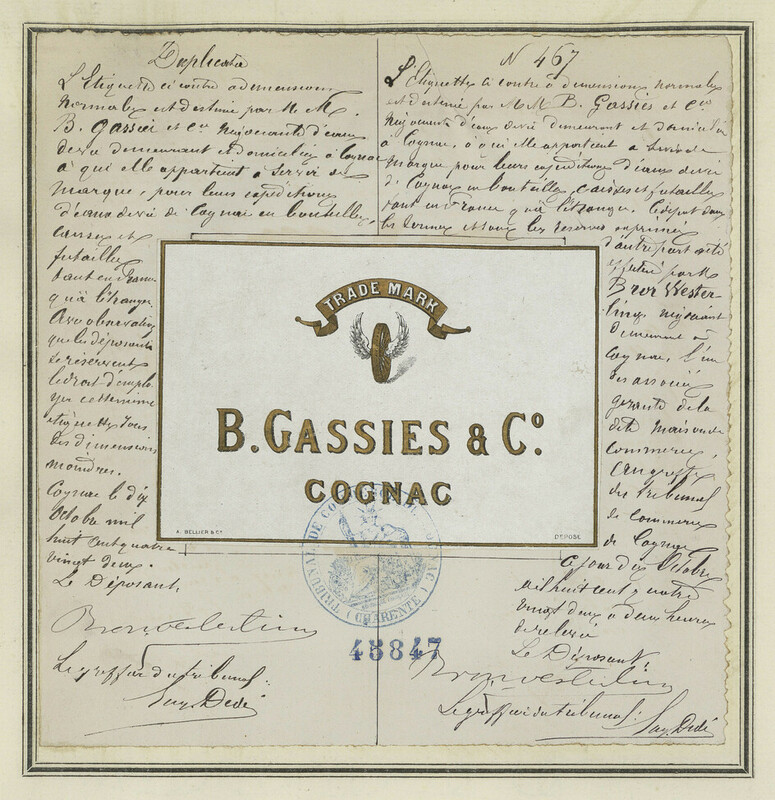 Duplicata
L'Etiquette ci contre a dimensions
normales est destiné par M. M.
B. Gassies et Cie négociants d'eaux
de vie demeurant et domiciliés à Cognac
à qui elle appartient à servir de
marque, pour leurs expéditions
d'eaux de vie de Cognac en bouteilles,
caisses et
futailles
tant en France
qu'à l'étranger
Avec observation
que les déposants
se réservent
le droit d'emplo
yer cette même
étiquette sous
des dimensions
moindres.
Cognac le dix
Octobre mil
huit cent quatre
vingt deux.
Le Déposant,
Le greffier du tribunal:
N 467
L'Etiquette ci contre à dimensions normales
est destiné par MM B. Gassies et Cie
négociants d'eaux de vie demeurant et domiciliés
à Cognac, à qui elle appartient à servir de
marque pour leurs expéditions d'eaux de vie
de Cognac en bouteilles, caisses et futailles
tant en France qu'à l'étranger. Ce dépot dans
les termes et sous les reserves exprimées
d'autre part a été
effectué par M
Bror Wester-
ling, négociant
demeurant à
Cognac, l'un
des associés
gérants de la
dite maison de
commerce,
au greffe
du tribunal
de Commerce
de Cognac
ce jour dix Octobre
mil huit cent quatre
vingt deux à deux heures
de relevée
Le Déposant:
Le greffier du tribunal:
TRADE MARK
B. GASSIES & Co.
COGNAC
A. BELLIER & Cie
DÉPOSÉ
TRIBUNAL DE COMMERCE DE COGNAC (CHARENTE)
45847